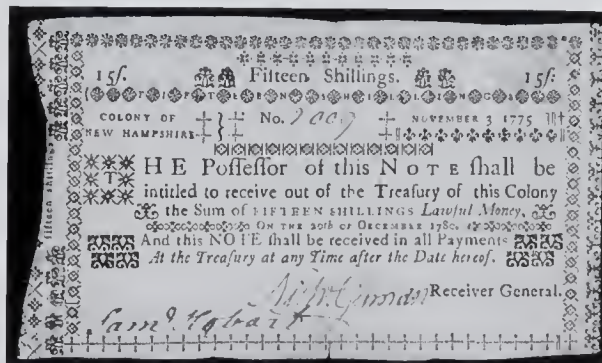 15ſ. Fifteen Shillings. 15ſ.
F I F T E E N S H I L L I N G S
COLONY OF NEW HAMPSHIRE No. 7009 NOVEMBER 3 1775
THE Poſſeſſor of this NOTE ſhall be
intitled to receive out of the Treaſury of this Colony
the Sum of FIFTEEN SHILLINGS Lawful Money,
ON THE 20th OF DECEMBER 1780.
And this NOTE ſhall be received in all Payments
At the Treaſury at any Time after the Date hereof.
Receiver General.
Sam.l Hobart
fifteen shillings